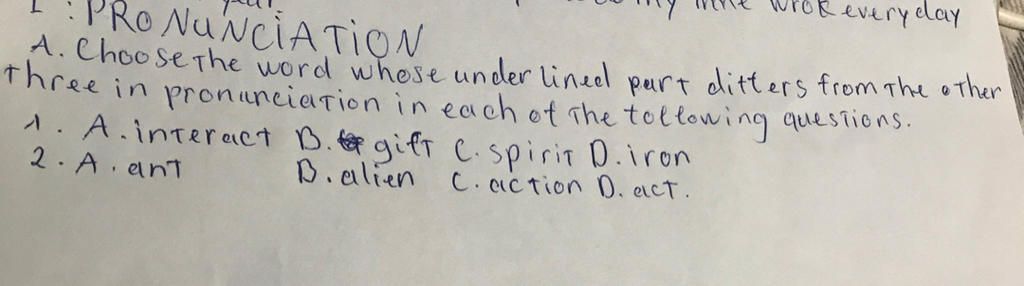 I : PRONUNCIATION
wrok everyday
A. Choose the word whose underlined part ditters from the other
three in pronunciation in each of the tollowing questions.
1. A. interact B. gift C. spirit D. iron
2. A. ant B. alien C. action D. act.